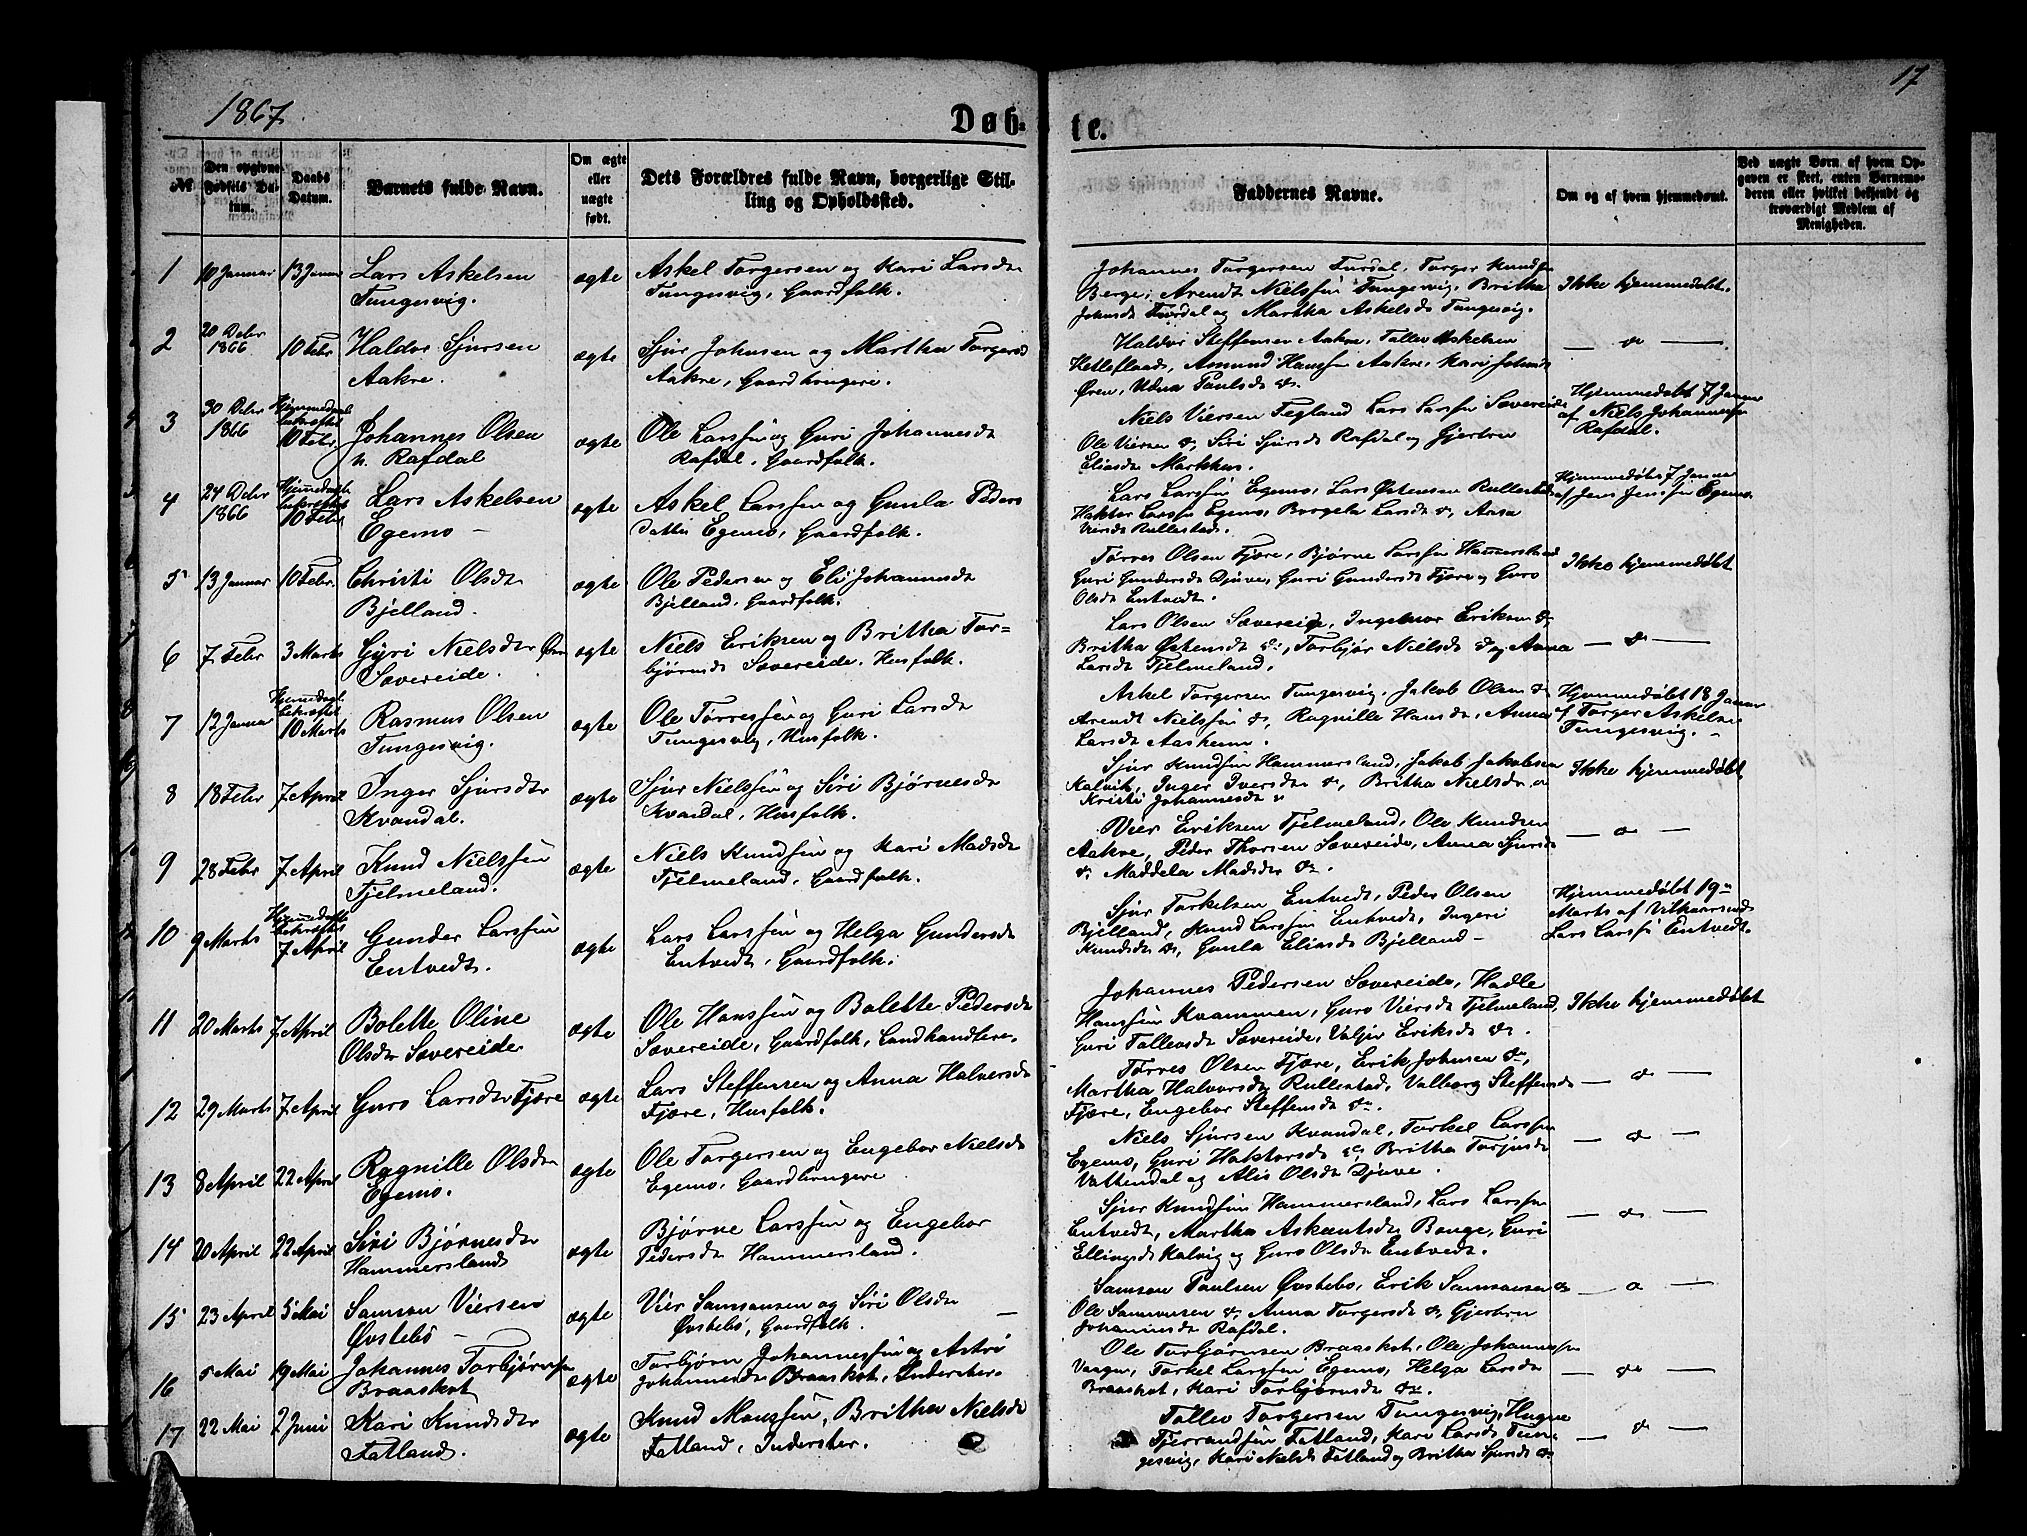 17
1867.
Døb-
te.
№
Den opgivne Fødsels Datum.
Daabs Datum.
Barnets fulde Navn.
Om ægte eller uægte født.
Dets Forældres fulde Navn, borgerlige Stilling og Opholdssted.
Faddernes Navne.
Om og af hvem hjemmedømt.
Ved uægte Børn af hvem Opgaven er skeet, enten Barnemoderen eller hvilket bekjendt og troværdigt Medlem af Menigheden.
1 10 Januar 13 Januar Lars Askelsen ægte Askel Torgersen og Kari Larsdr
Tungesvig. Tungesvig, Gaardfolk.
Johannes Torgersen Furdal, Torger Knudsen
Berge, Arendt Nielssen Tungesvig, Britha
Johnsdr Furdal og Martha Askelsdr Tungesvig.
Ikke hjemmedøbt.
2 20 Debr 1866 10 Febr Haldor Sjursen ægte Sjur Johnsen og Martha Torgersdr
Aakre. Aakre, Gaardbrugere.
Haldor Steffensen Aakre, Tollev Askelsen
Ketleflaadt, Amund Hanssen Aakre, Kari Johnsdr
Øren, Udna Paulsdr do.
— do —
3 30 Debr 1866 Hjemmedaab bekræftet 10 Febr. Johannes Olsen ægte Ole Larssen og Guri Johannesdr
n. Rafdal Rafdal, Gaardfolk.
Niels Viersen Tegland Lars Larssen Sævereide
Ole Viersen do, Siri Sjursdr Rafdal og Gjertru
Eliasdr Markhus.
Hjemmedøbt 7 Januar
af Niels Johannessen
Rafdal.
4 24 Debr 1866 Hjemmedaab bekræftet 10 Febr Lars Askelsen ægte Askel Larssen og Gunla Peders
Egemo — datter Egemo, Gaardfolk.
Lars Larssen Egemo, Lars Østensen Rullestad
Haktor Larssen Egemo, Borgela Larsdr do, Anna
Viersdr Rullestad.
Hjemmedøbt 7 Januar
af Jens Jenssen Egemo.
5 13 Januar 10 Febr. Christi Olsdr ægte Ole Pedersen og Eli Johannesdr
Bjelland. Bjelland, Gaardfolk.
Torres Olsen Fjære, Bjørne Larssen Hammersland
Guri Gundersdr Djuve, Guri Gundersdr Fjære og Guro
Olsdr Entvedt.
Ikke hjemmedøbt
6 7 Febr 3 Marts Gyri Nielsdr Øvre ægte Niels Eriksen og Britha Tor-
Sævereide. bjørnsdr Sævereide. Husfolk.
Lars Olsen Sævereide, Ingebror Eriksen do
Britha Østensdr do, Torbjør Nielsdr do og Anna
Larsdr Fjelmeland.
— do —
7 12 Januar Hjemmedaab bekræftet 10 Marts Rasmus Olsen ægte Ole Tørressen og Guri Larsdr
Tungesvig. Tungesvig, Husfolk.
Askel Torgersen Tungesvig, Jakob Olsen do
Arendt Nielssen do, Ragnille Hansdr, Anna
Larsdr Aasheim.
Hjemmedøbt 18 Januar
af Torger Askelsen
Tungesvig. —
8 18 Febr 7 April Inger Sjursdr ægte Sjur Nielssen og Siri Bjørnesdr
Kvandal. Kvandal, Husfolk.
Sjur Knudsen Hammersland, Jakob Jakobsen
Kalvik, Inger Iversdr do, Britha Nielsdr do
Kristi Johannesdr do
Ikke hjemmedøbt
9 28 Febr 7 April Knud Nielssen ægte Niels Knudsen og Kari Madsdr
Fjelmeland. Fjelmeland, Gaardfolk.
Vier Eriksen Fjelmeland, Ole Knudsen
Aakre, Peder Thorsen Sævereide, Anna Sjursdr
do Maddela Madsdr do.
— do —
10 9 Marts Hjemmedaab bekræftet 7 April Gunder Larssen ægte Lars Larssen og Helga Gundersdr
Entvedt. Entvedt, Gaardfolk.
Sjur Torkelsen Entvedt, Peder Olsen
Bjelland, Knud Larssen Entvedt, Ingeri
Knudsdr do, Gunla Eliasdr Bjelland —
Hjemmedøbt 19de
Marts af Vilkaarsmd
Lars Larssen Entvedt.
11 20 Marts 7 April Bolette Oline ægte Ole Hanssen og Bolette Pedersdr
Olsdr Sævereide Sævereide, Gaardfolk, Landhandlere.
Johannes Pedersen Sævereide, Hadle
Hanssen Kvammen, Guro Viersdr Fjelmeland,
Guri Tollevsdr Sævereide, Valjer Eriksdr do.
Ikke hjemmedøbt
12 29 Marts 7 April Guro Larsdr Fjære ægte Lars Steffensen og Anna Halversdr
Fjære, Husfolk.
Torres Olsen Fjære, Erik Johnsen do,
Martha Halvorsdr Rullestad, Valborg Steffensdr
Fjære, Engebor Steffensdr do.
— do —
13 8 April 22 April Ragnille Olsdr ægte Ole Torgersen og Engebor Nielsdr
Egemo. Egemo, Gaardbrugere
Niels Sjursen Kvandal, Torkel Larssen
Egemo, Guri Haktorsdr do, Britha Torjusdr
Vattendal og Alis Olsdr Djuve.
— do —
14 20 April 22 April Siri Bjørnesdr ægte Bjørne Larssen og Engebor
Hammersland Pedersdr Hammersland.
Sjur Knudsen Hammersland, Lars Larssen
Entvedt, Martha Askautsdr Bauge, Guri
Ellingsdr Kalvig og Guro Olsdr Entvedt.
— do —
15 23 April 5 Mai Samson Viersen ægte Vier Samsonsen og Siri Olsdr —
Øvstebø — Øvstebø, Gaardfolk.
Samson Paulsen Øvstebø, Erik Samsonsen do
Ole Samsonsen do, Anna Torgersdr do, Gjertru
Johannesdr Rafdal.
— do —
16 5 Mai 19 Mai Johannes Torbjørnsen ægte Torbjørn Johannessen og Astri
Braaskot Johannesdr Braaskot, Inderster.
Ole Torbjørnsen Braaskot, Ole Johannessen
Vaage, Torkel Larssen Egemo, Helga Larsdr
Braaskot, Kari Torbjørnsdr do.
— do —
17 22 Mai 2 Juni Kari Knudsdr ægte Knud Monssen, Britha Nielsdr
Fatland. Fatland, Inderster.
Tollev Torgersen Tungesvig, Hagne
Tjerrandsen Fatland, Kari Larsdr Tun-
gesvig, Kari Nielsdr Fatland og Britha Sjursdr do
— do —